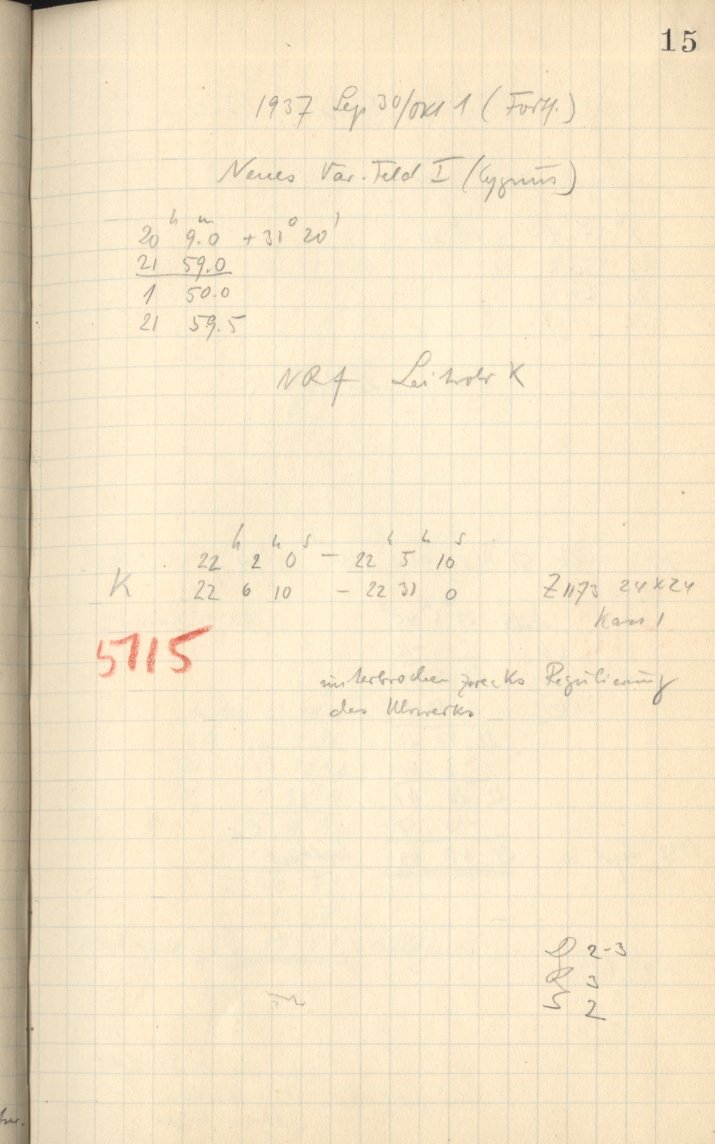 15
1937 Sep 30/Okt 1 (Forts.)
Neues Var. Feld I (Cygnus)
20 h 9.0 m +31° 20'
21 59.0
1 50.0
21 59.5
NRf Leitrohr K
22 h 2 m 0 s – 22 h 5 m 10 s
K 22 6 10 – 22 31 0 Z 1173 24x24
Kass 1
5715
unterbrochen zwecks Regulierung
des Uhrwerks
D 2-3
R 3
S 2